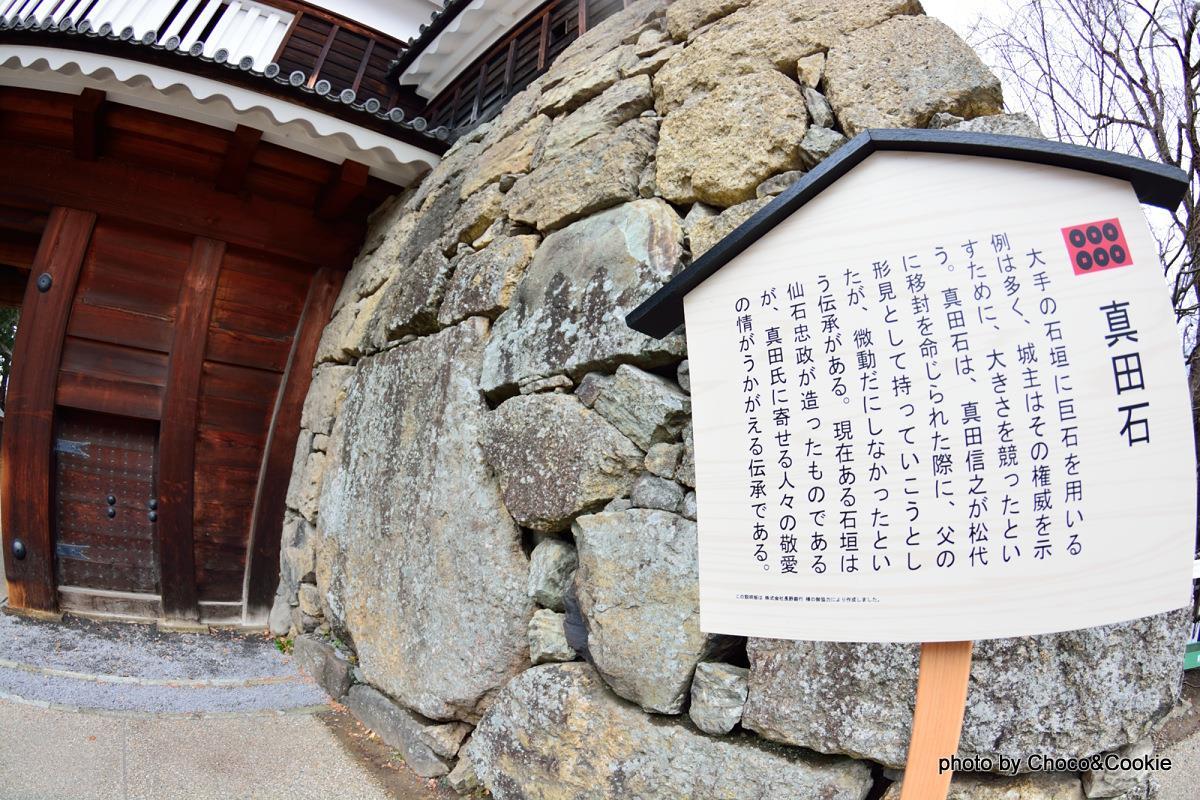 真田石
大手の石垣に巨石を用いる
例は多く、城主はその権威を示
すために、大きさを競ったとい
う。真田石は、真田信之が松代
に移封を命じられた際に、父の
形見として持っていこうとし
たが、微動だにしなかったとい
う伝承がある。現在ある石垣は
仙石忠政が造ったものである
が、真田氏に寄せる人々の敬愛
の情がうかがえる伝承である。
この説明板は 株式会社長野銀行 様の御協力により作成しました。
photo by Choco&Cookie